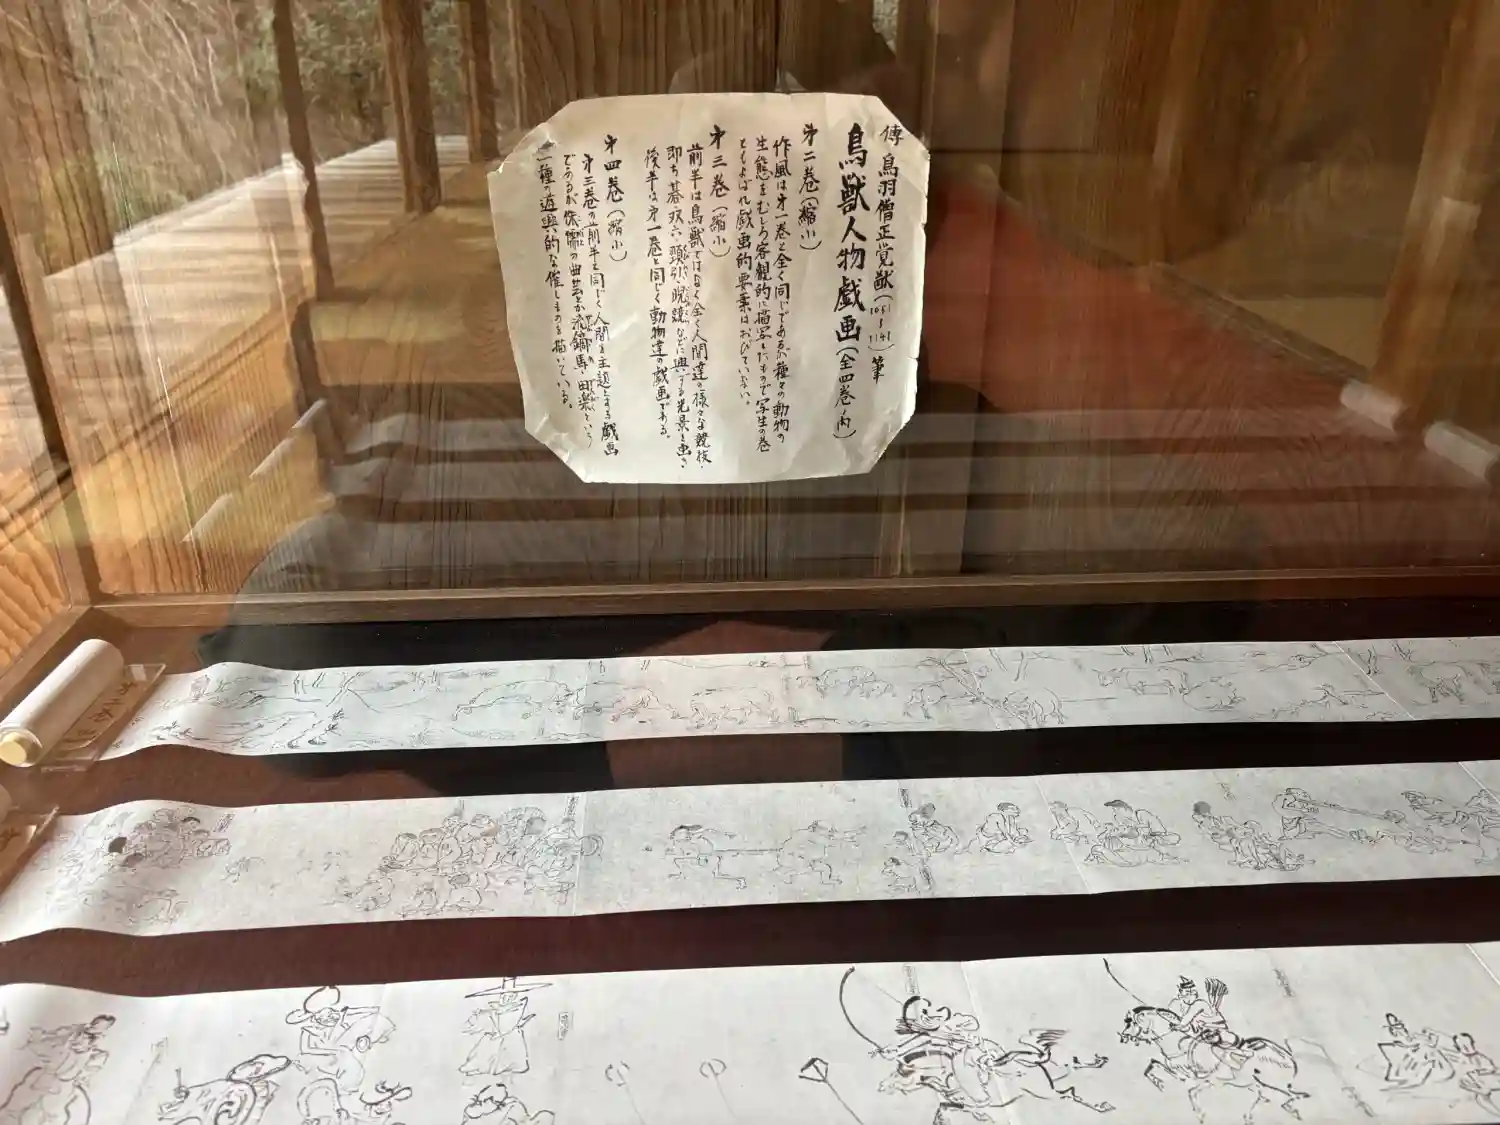 傳 鳥羽僧正覚猷(1053〜1141)筆
鳥獣人物戯画(全四巻ノ内)
才二巻(縮小)
作風は才一巻と全く同じであるが種々の動物の
生態をむしろ客観的に描写したもので写生の巻
ともよばれ戯画的要素はおびていない。
才三巻(縮小)
前半は鳥獣ではなく全く人間達の様々な競技、
即ち碁・双六・頸引・睨競などに興ずる光景を画き
後半は才一巻と同じく動物達の戯画である。
才四巻(縮小)
才三巻の前半と同じく人間を主題とする戯画
であるが侏儒の曲芸とか流鏑馬・田楽という
一種の遊興的な催しものを描いている。